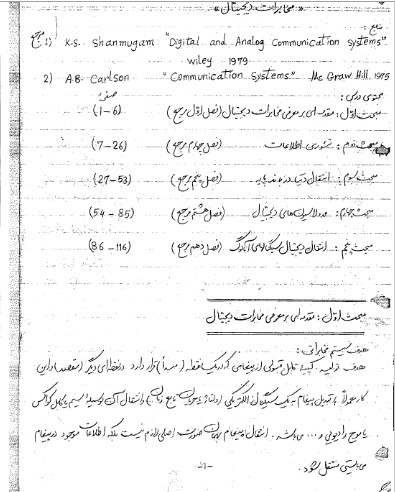 « مخابرات دیجیتال »
منابع :
مرجع 1) K.S. Shanmugam "Digital and Analog Communication Systems"
wiley 1979
2) A.B. Carlson "Communication Systems" Mc Graw Hill. 1975
محتوی درس : صفحه
مبحث اول : مقدمه ای بر معرفی مخابرات دیجیتال (فصل اول مرجع ) (1-6)
مبحث دوم : تئوری اطلاعات (فصل چهارم مرجع ) (7-26)
مبحث سوم : انتقال دیتا در باند پایه (فصل پنجم مرجع ) (27-53)
مبحث چهارم : مدولاسیون های دیجیتال (فصل هشتم مرجع ) (54-85)
مبحث پنجم : انتقال دیجیتال سیگنالهای آنالوگ (فصل دهم مرجع ) (86-116)
مبحث اول : مقدمه ای بر معرفی مخابرات دیجیتال
هدف سیستم مخابراتی :
هدف تولید کپیه قابل قبولی از پیغامی که در یک نقطه (مبدأ) قرار دارد در نقطه ای دیگر (مقصد) و این
کار معمولاً با تبدیل پیغام به یک سیگنال الکتریکی ( ولتاژ یا جریان تابع زمان) و انتقال آن بوسیله سیم یا کابل کواکس
یا موج رادیویی و ... می باشد . انتقال پیغام بهمان صورت اصلی لازم نیست بلکه اطلاعات موجود در پیغام
می بایستی منتقل شود .
-1-